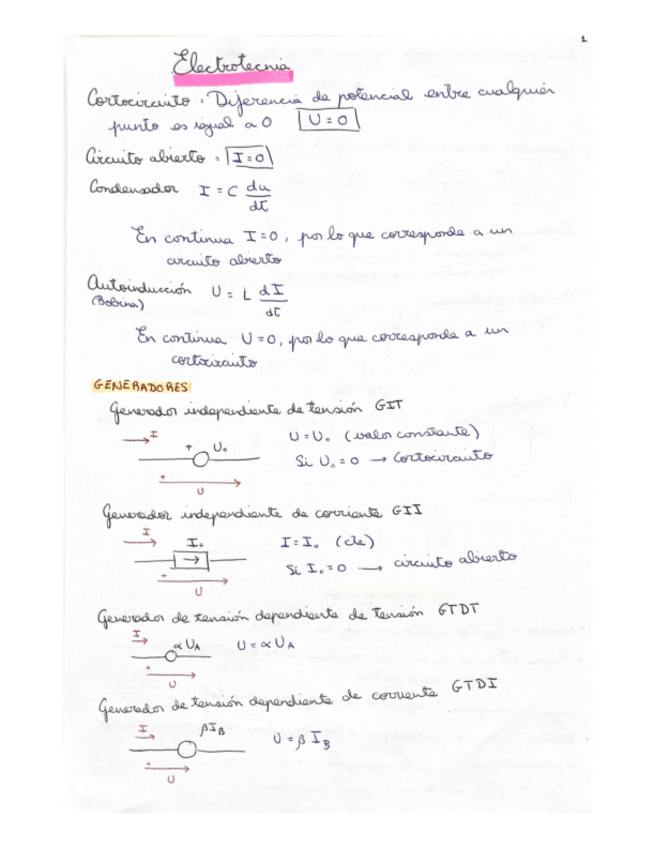 1
Electrotecnia
Cortocircuito : Diferencia de potencial entre cualquier
punto es igual a 0 U = 0
Circuito abierto : I = 0
Condensador I = C du/dt
En continua I = 0, por lo que corresponde a un
circuito abierto
Autoinducción U = L dI/dt
(Bobina)
En continua U = 0, por lo que corresponde a un
cortocircuito
GENERADORES
Generador independiente de tensión GIT
I + U₀ U = U₀ (valor constante)
Si U₀ = 0 → Cortocircuito
+
U
Generador independiente de corriente GII
I I₀ I = I₀ (cte)
→ Si I₀ = 0 → circuito abierto
+
U
Generador de tensión dependiente de tensión GTDT
I ∝ U_A U = ∝ U_A
+
U
Generador de tensión dependiente de corriente GTDI
I βI_B U = β I_B
+
U